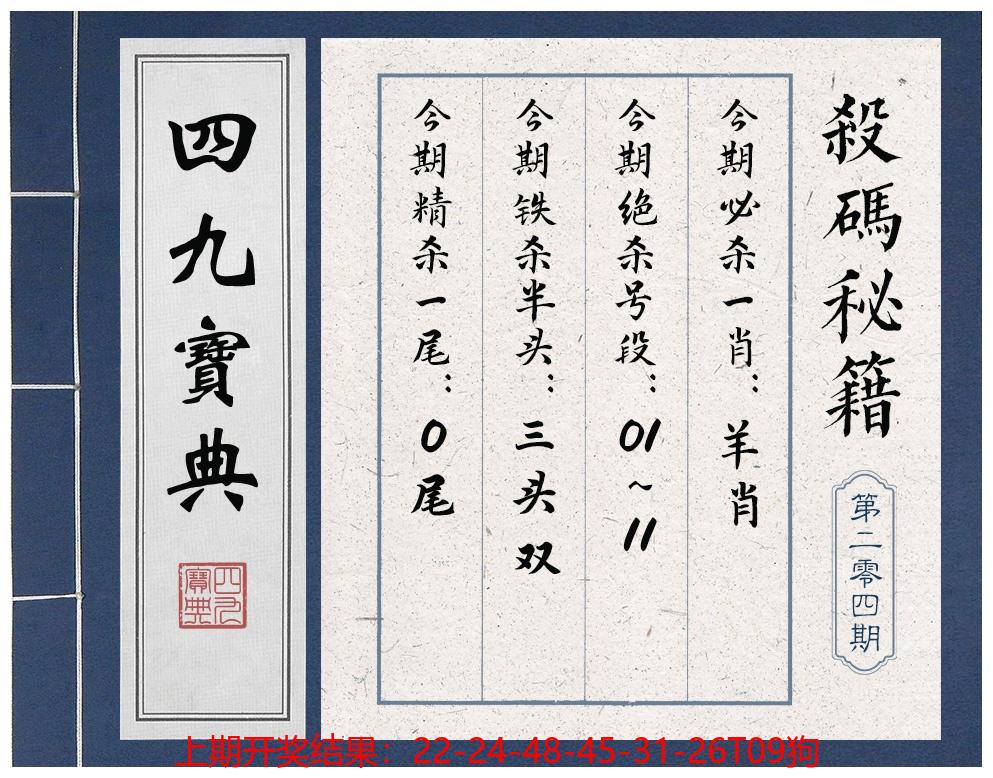 殺碼秘籍
第二零四期
今期必杀一肖：羊肖
今期绝杀号段：01~11
今期铁杀半头：三头双
今期精杀一尾：0尾
四九寶典
四九寶典
上期开奖结果：22-24-48-45-31-26T09狗